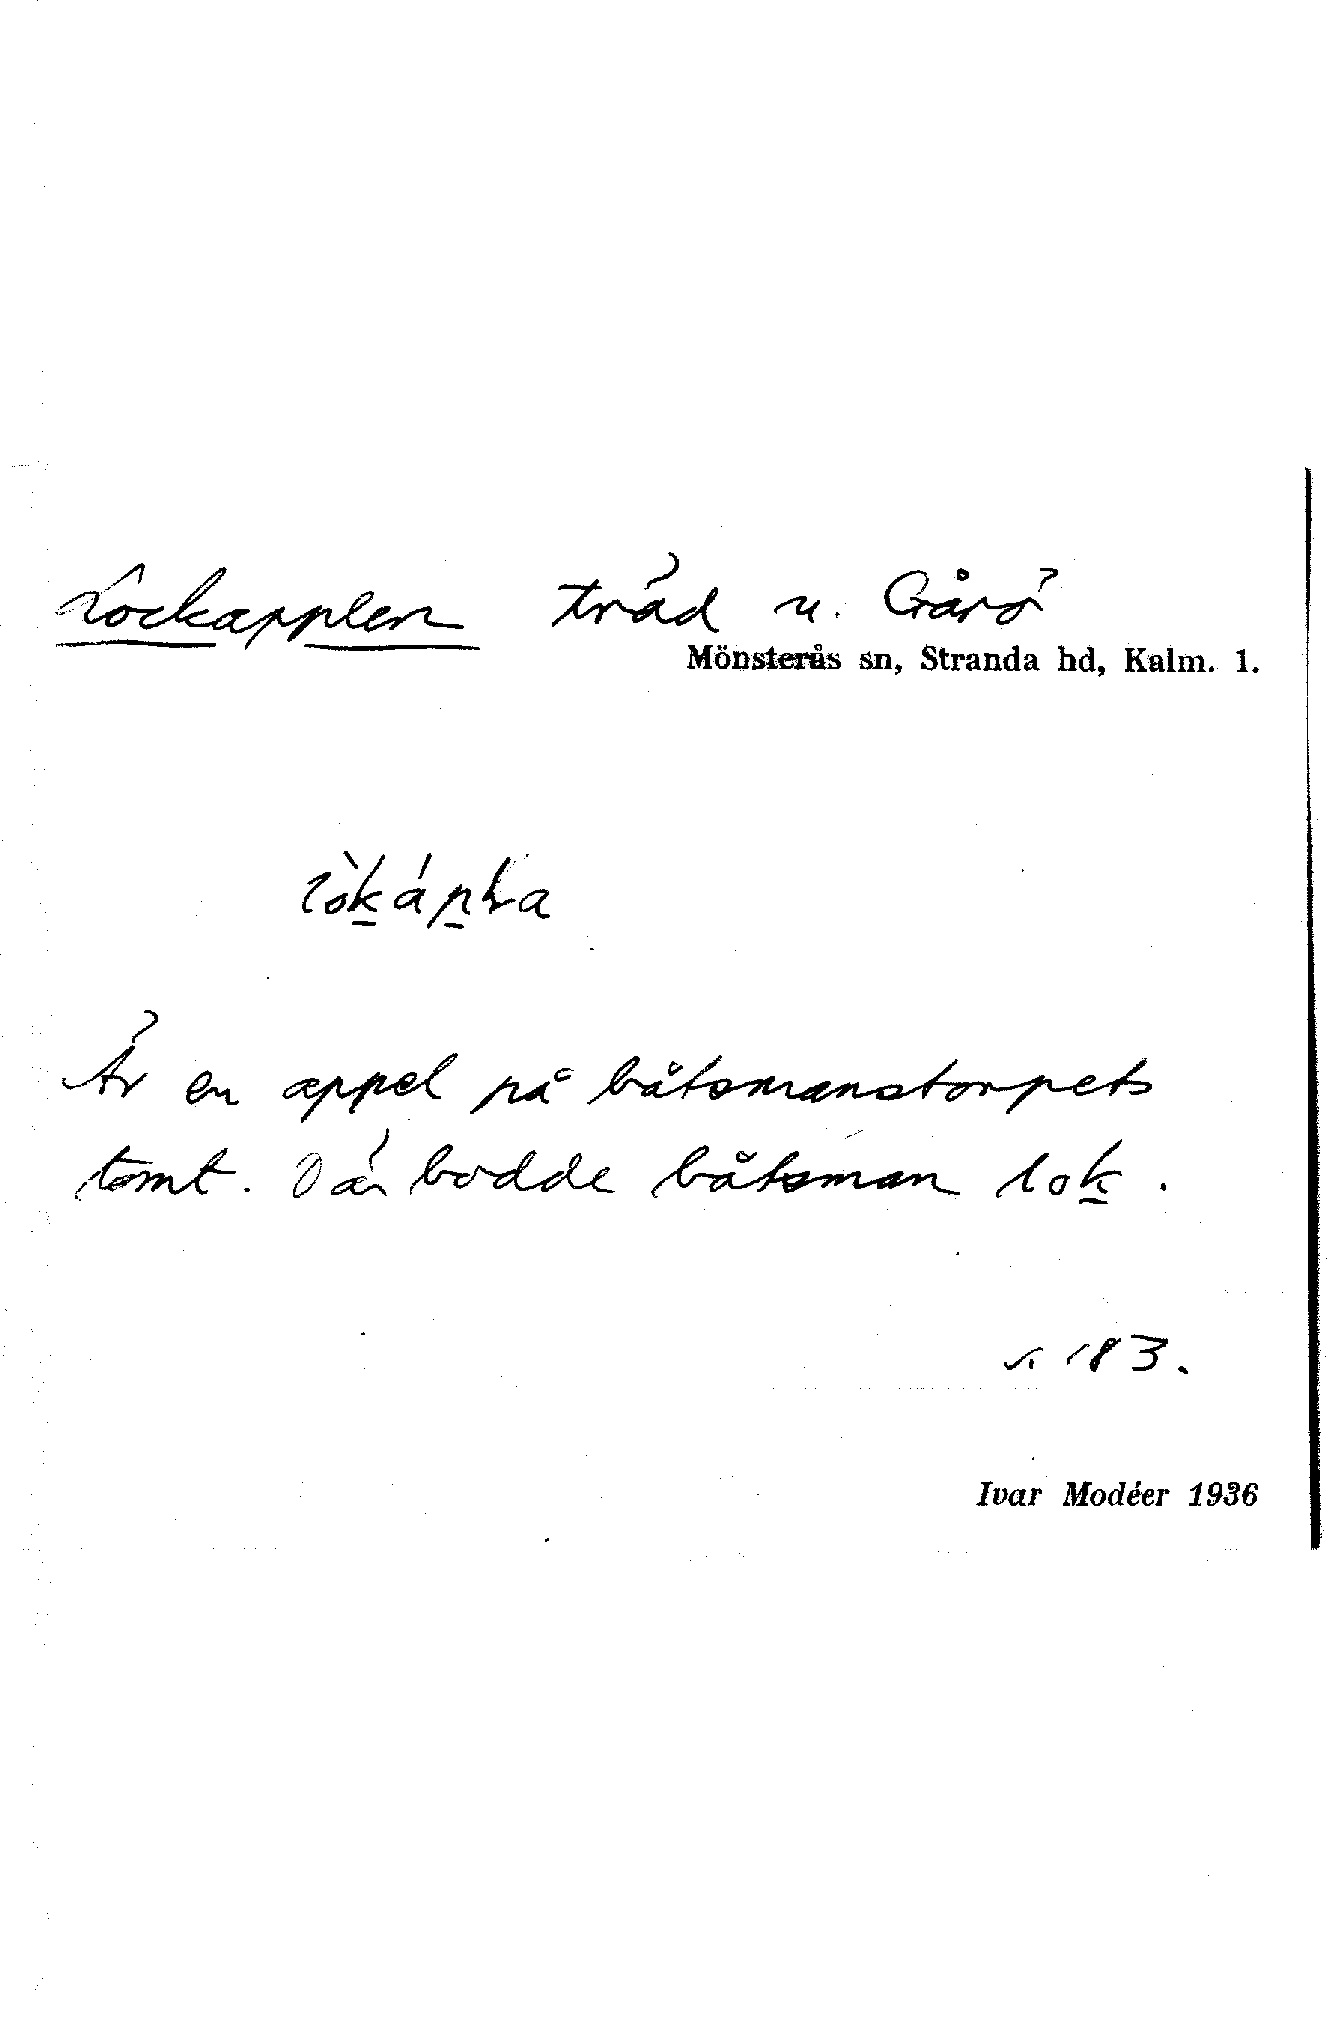 Lockapplen träd u. Gårö
Mönsterås sn, Stranda hd, Kalm. l.
Är en appel på båtsmanstorpets
tomt. Där bodde båtsman lok.
s. 183.
Ivar Modéer 1936